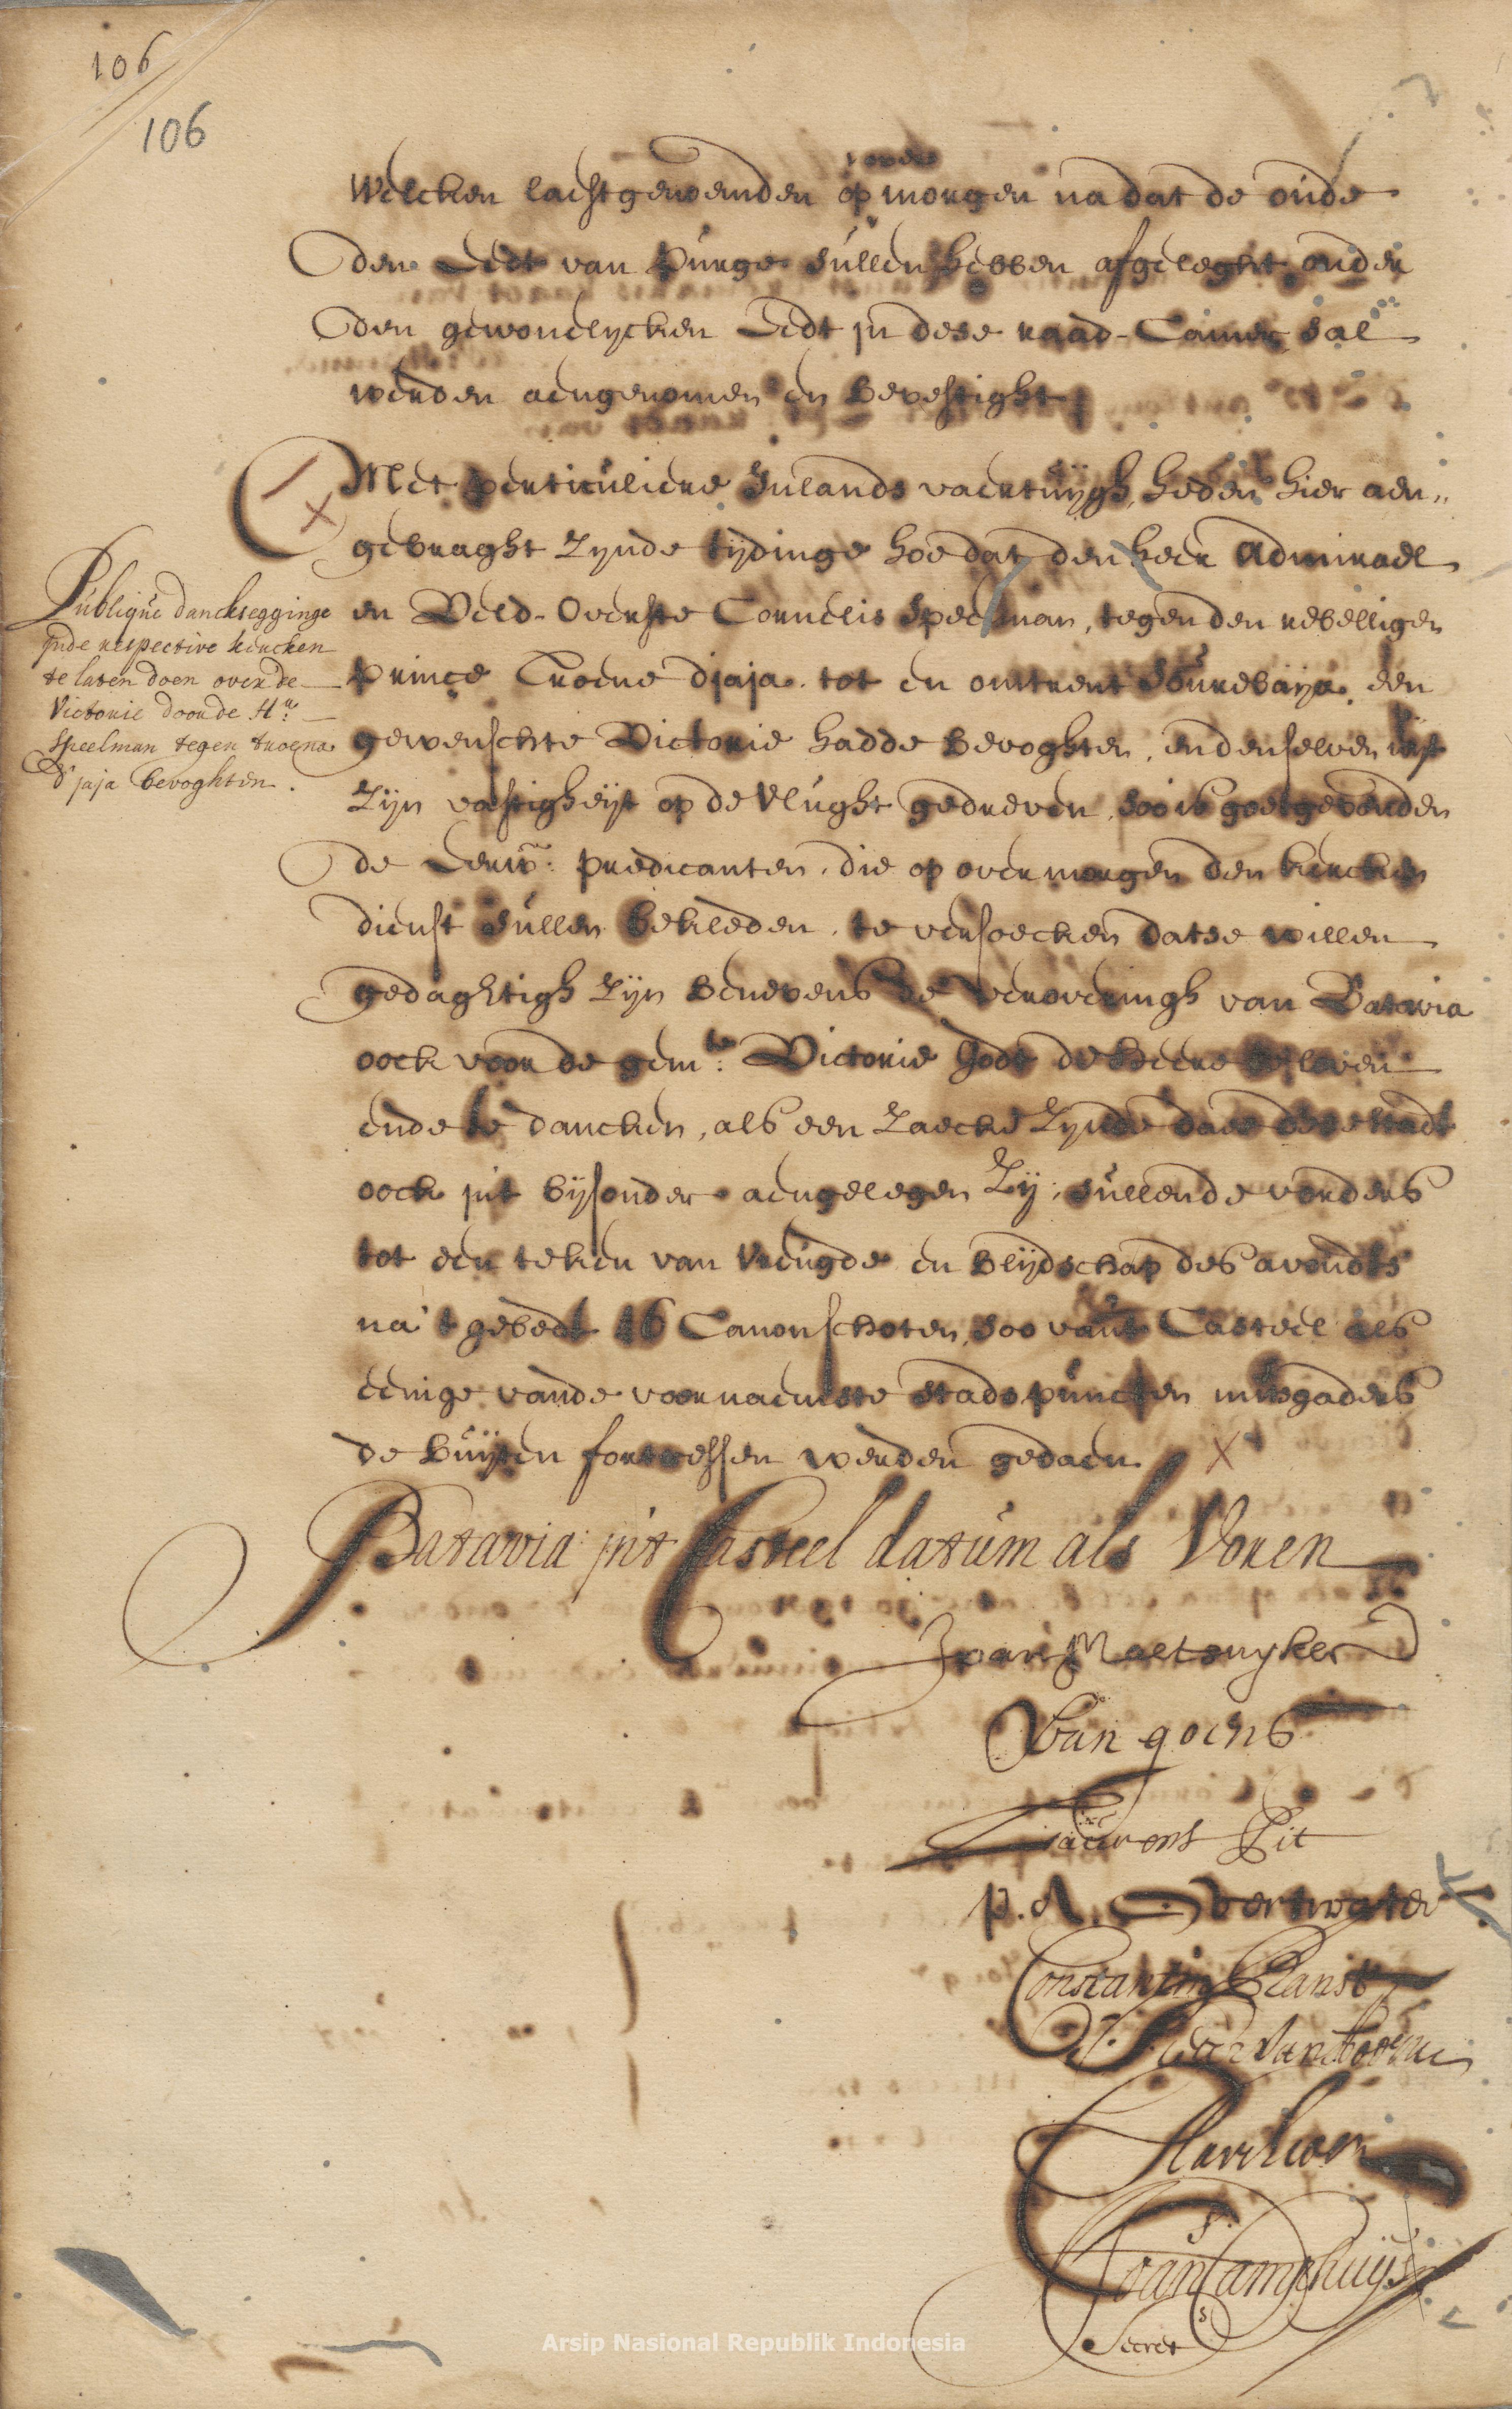 106
106
over
Welcken laestgenoemden op morgen nadat de oude
den Eedt van Purge sullen hebben afgeleght onder
den gewonelycken Eedt in dese raad-Camer sal
werden aengenomen en bevestight
Met perticuliere Inlands vaertuijgh, heden hier aen„
gebraght zynde tijdinge hoe dat den heer Admirael
en Veld-Overste Cornelis Speelman, tegen den rebelligen
Prince Troene djaja. tot en omtrent Sourebaija een
gewenschte Victorie hadde bevoghten, en denselven uijt
zijn vastigheijt op de vlught gedreven, soo is goetgevonden
de Eerw: predicanten, die op overmorgen den kercken
dienst sullen bekleden, te versoecken datse willen
gedaghtigh zijn benevens de veroveringh van Batavia
oock voor de gemte: Victorie Godt de Heere te loven
ende te dancken, als een zaecke zynde daer dese stadt
oock int bijsonder aengelegen zij; sullende vorders
tot een teken van vreugde en blijdschap des avondts
na't gebedt 16 Canonschoten, soo van't Casteel als
eenige vande voornaemste stadspuncten mitsgaders
de buijten fortressen werden gedaen
Publique danckzegginge
inde respective kercken
te laten doen over de
Victorie door de Hr.
Speelman tegen troena
d'jaja bevoghten.
Batavia int Casteel datum als Voren
Joan Maetsuyker
Van goens
Laurens Pit
P. A. Overtwater
Constantin Ranst
Van Hoorn
Joan Camphuijs
Secrets
Arsip Nasional Republik Indonesia